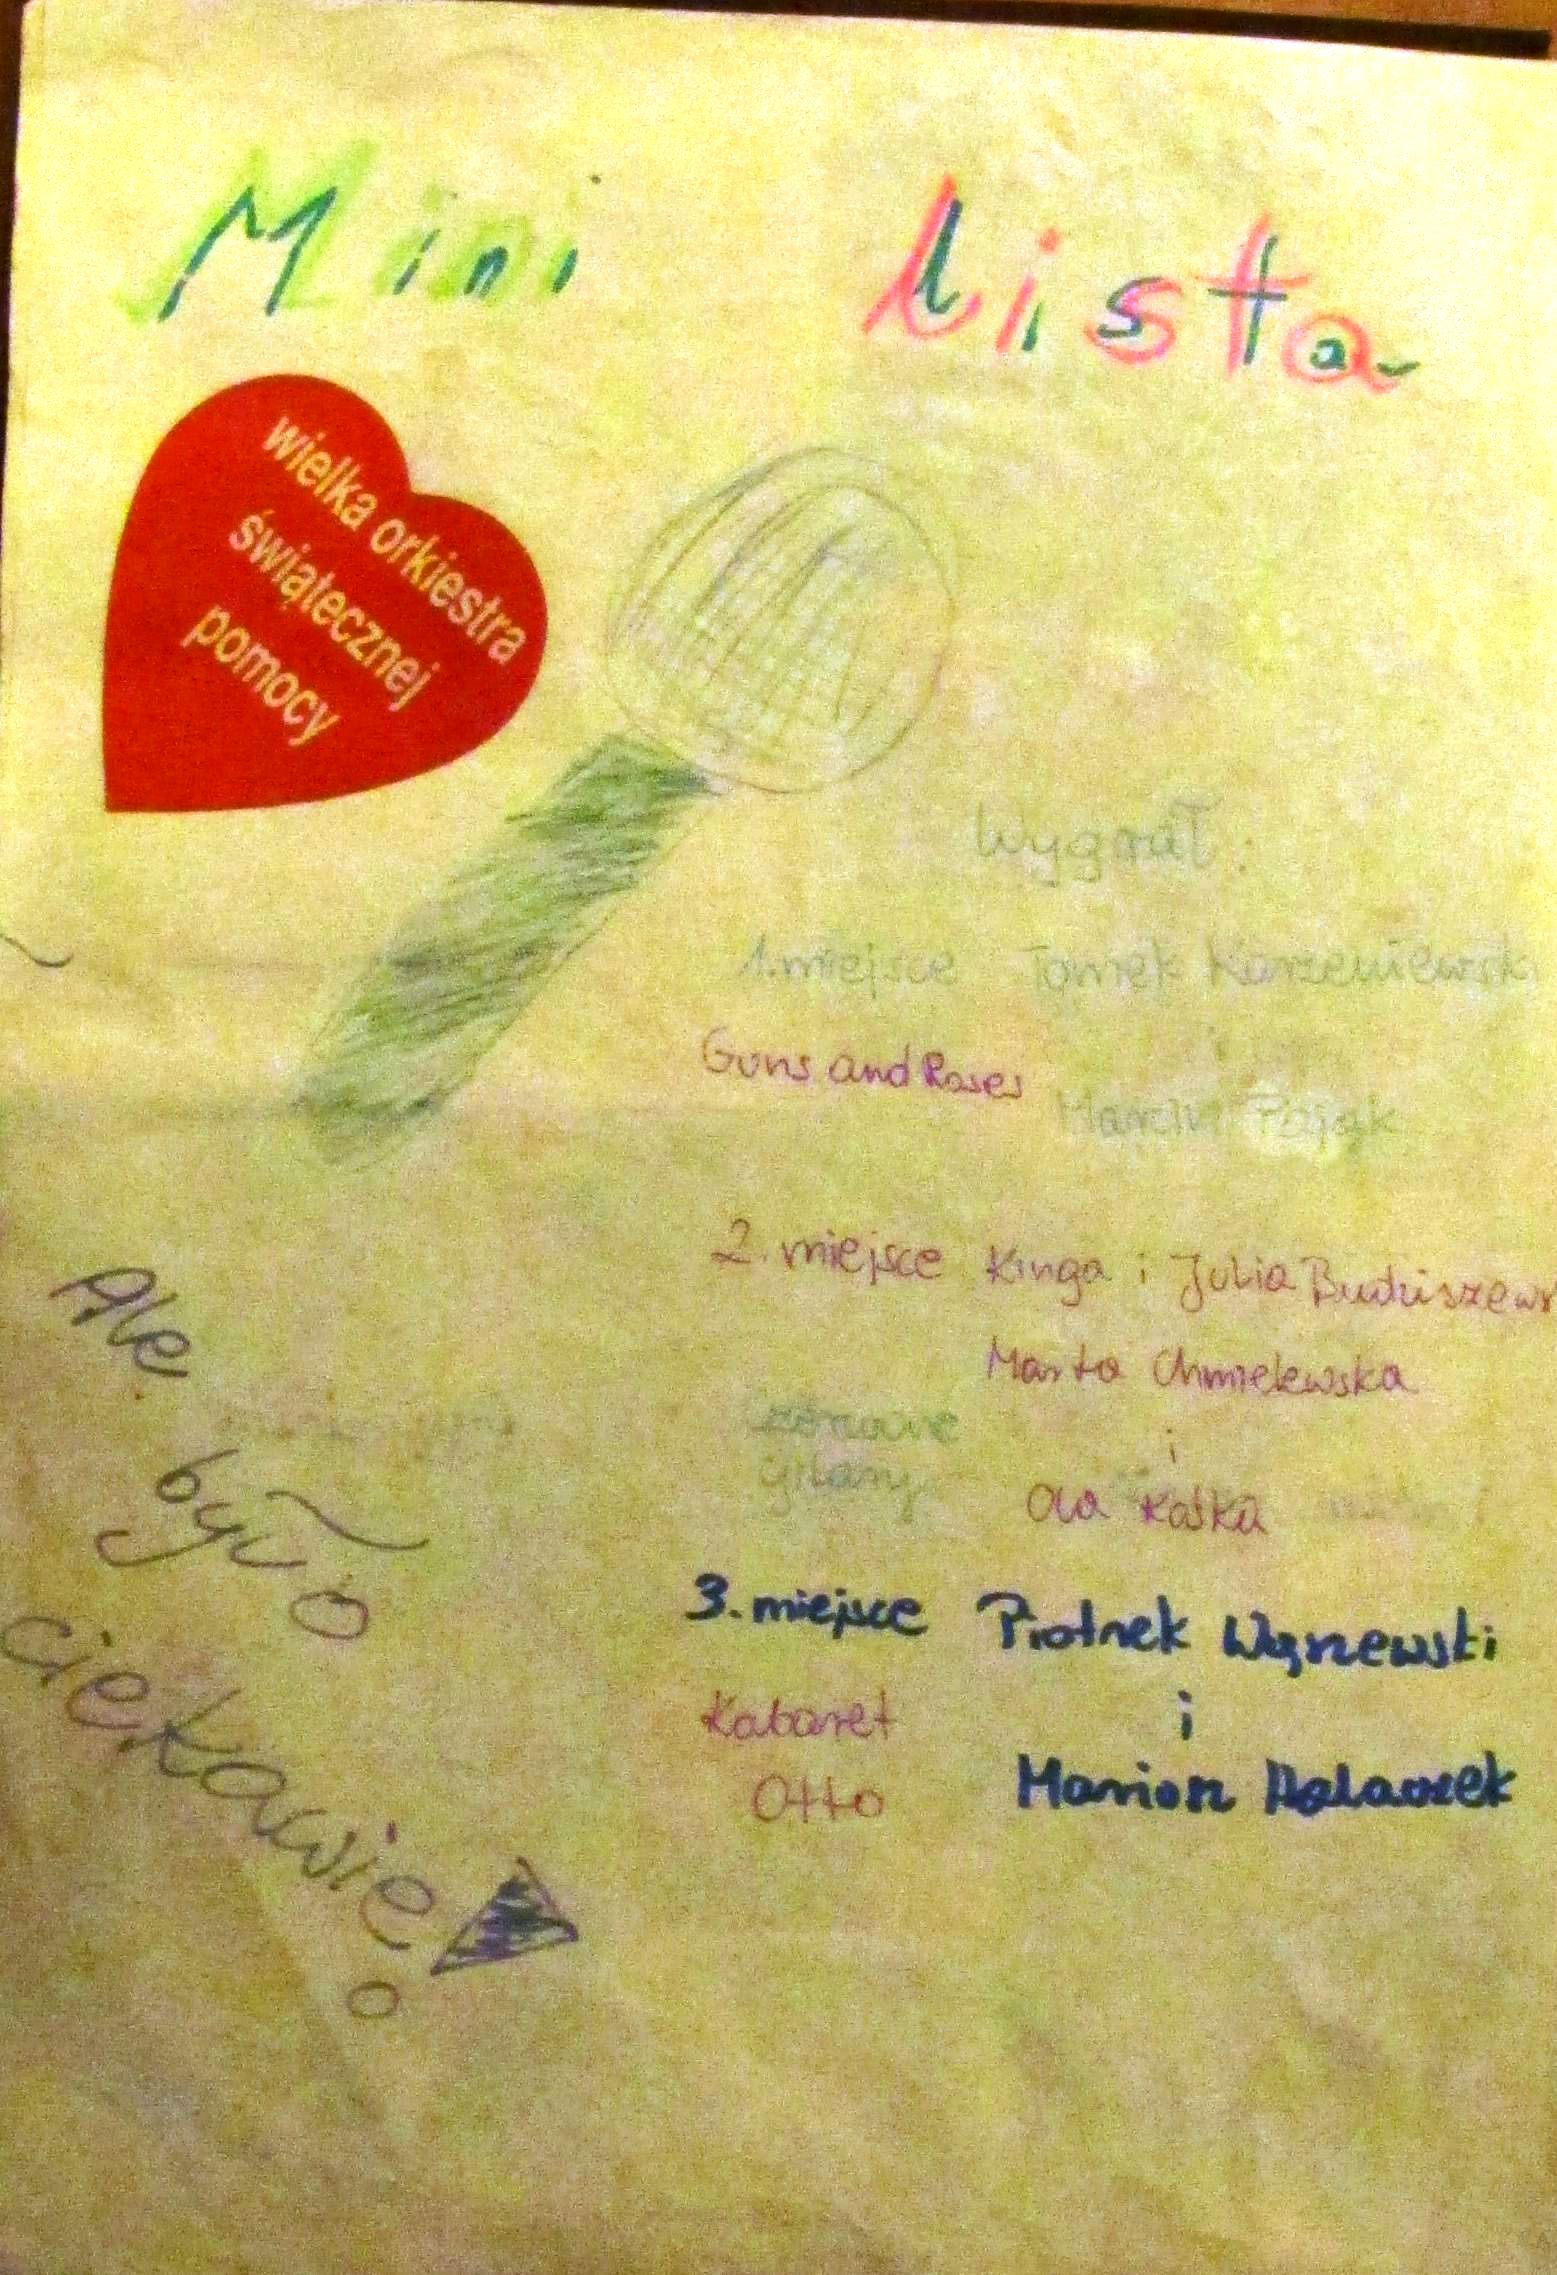 Mini Lista
wielka orkiestra
świątecznej
pomocy
Wygrał:
1. miejsce Tomek Korzeniewski
i
Guns and Roses
Marcin Pająk
2. miejsce Kinga i Julia
Marta Chmielewska
i
Ola Kaśka
3. miejsce Piotrek
i
Kabaret
Otto
Ale
było
ciekawie